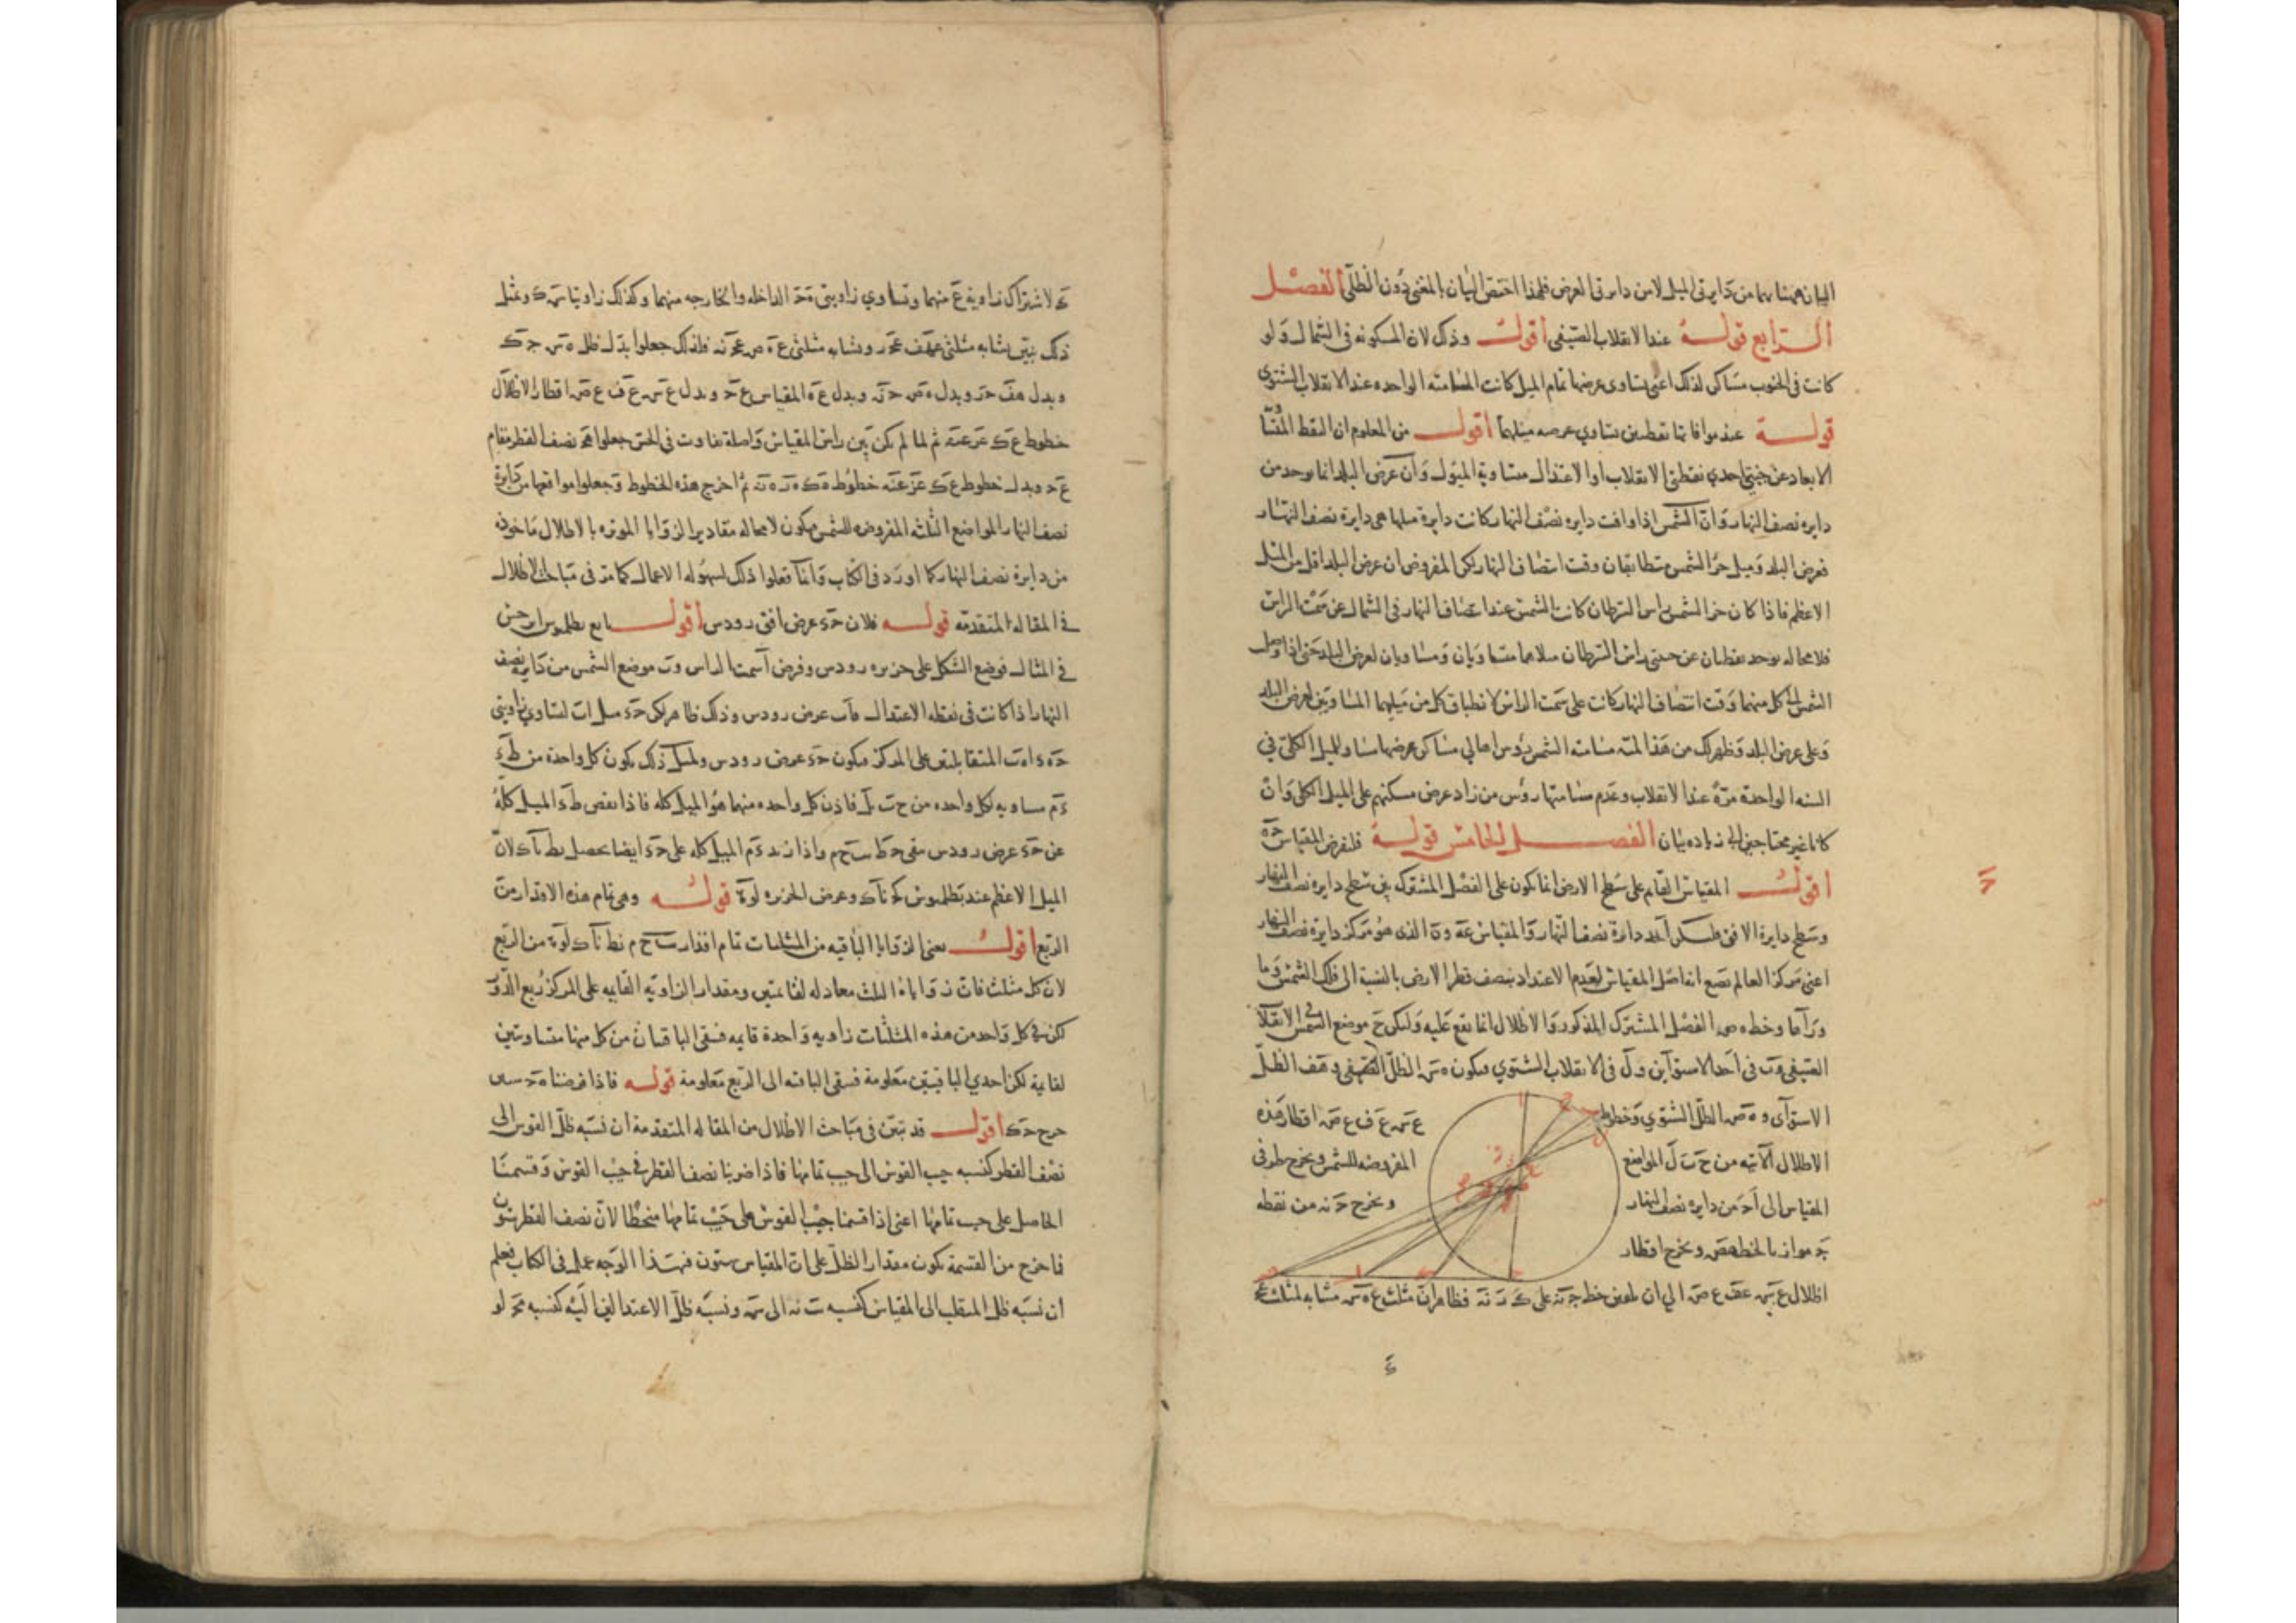 البيان همنا بهما من دايرتي الميل لا من دايرتي العرض فلهذا اختص البيان بالمغني دون الظلي الفصل
الرابع قوله عند الانقلاب الصيفي أقول وذلك لان المسكونه في الشمال ولو
كانت في الجنوب مساكن لذلك اعني يساوي عرضها تمام الميل كانت المسامته الواحده عند الانقلاب الشتوي
قوله عند موافاتها نقطتين يساوي عرضه ميلهما أقول من المعلوم ان النقط المتساوية
الابعاد عن جنبتي احدي نقطتي الانقلاب او الاعتدال متساوية الميول وان عرض البلد انما يوجد من
دايره نصف النهار وان الشمس اذا وافت دايره نصف النهار كانت دايرة ميلها هي دايرة نصف النهار
فعرض البلد وميل جزء الشمس متطابقان وقت انتصاف النهار لكن المفروض ان عرض البلد اقل من الميل
الاعظم فاذا كان جزء الشمس راس السرطان كانت الشمس عند انتصاف النهار في الشمال عن سمت الراس
فلا محاله يوجد نقطتان عن جنبتي راس السرطان ميلاهما متساويان ومساويان لعرض البلد حتى اذا وصل
الشمس الى كل منهما وقت انتصاف النهار كانت على سمت الراس لانطباق كل من ميليهما المساويين لعرض البلد
وعلى عرض البلد وظهر لك من هذا لمية مسامته الشمس رؤس اهالي مساكن عرضها مساو للميل الكلي في
السنه الواحدة مرة عند الانقلاب وعدم مسامتتها رؤس من زاد عرض مسكنهم على الميل الكلي وان
كانا غير محتاجين الى زياده بيان الفصل الخامس قوله فلنفرض المقياس جه
أقول المقياس القايم على سطح الارض انما يكون على الفصل المشترك بين سطح دايره نصف النهار
وسطح دايرة الافق فليكن ا ب ج د دائرة نصف النهار والمقياس عه و ه الذي هو مركز دايرة نصف النهار
اعني مركز العالم موضع اتفاصل المقياس لعدم الاعتداد بنصف قطر الارض بالنسبة الى فلك الشمس وما
وراها وخط ه ص الفصل المشترك المذكور والاظلال انما تقع عليه وليكن ح موضع الشمس في الانقلاب
الصيفي و ب في احد الاستوآين و ل في الانقلاب الشتوي فيكون ه س الظل الصيفي و ه ف الظل
الاستوآى و ه ص الظل الشتوي وخطوط ع س ع ف ع ص اقطار هذه
الاظلال الآتيه من ح ب ل المواضع المفروضه للشمس ويخرج طرفي
المقياس الى ا ج من دايره نصف النهار ويخرج ج نه من نقطه
ج موازيا لخط ه ص ويخرج اقطار
اظلال ع س ع ف ع ص الي ان يلقين خط ج نه على ك ز نه فظاهر ان مثلث ع ه س مشابه لمثلث ع ج
ك لاشتراك زاوية ع منهما وتساوي زاويتي ه ج الداخله والخارجه منهما وكذلك زاويتا س ك وبمثل
ذلك تبين تشابه مثلثي ع ه ف ع ج ز وتشابه مثلثي ع ه ص ع ج نه فلذلك جعلوا بدل ظل ه س ج ك
وبدل ه ف ج ز وبدل ه ص ج نه وبدل ع ه المقياس ع ج وبدل ع س ع ف ع ص اقطار الاظلال
خطوط ع ك ع ز ع نه ثم لما لم يكن بين راس المقياس واصله تفاوت في الحس جعلوا ه ج نصف القطر مقام
ع ج وبدل خطوط ع ك ع ز ع نه خطوط ه ك ه ز ه نه ثم اخرج هذه الخطوط وجعلوا مواقعها من دايرة
نصف النهار المواضع الثلثه المفروضه للشمس فيكون لا محاله مقادير الزوايا الموتره بالاظلال ماخوذه
من دايرة نصف النهار كما اورد في الكتاب وانما فعلوا ذلك لسهوله الاعمال كما مر في مباحث الاظلال
في المقاله المتقدمه قوله فلان ج ء عرض افق رودس أقول تابع بطلميوس ابرخس
في المثال فوضع الشكل على جزيره رودس وفرض آ سمت الراس و ب موضع الشمس من دايرة نصف
النهار اذا كانت في نقطه الاعتدال ف ا ب عرض رودس وذلك ظاهر لكن ج ء مثل ا ب لتساوي زاويتي
ج ه ء ا ه ب المتقابلتين على المركز فيكون ج ء عرض رودس ولمثل ذلك يكون كل واحدة من ط ء
ء م مساويه لكل واحده من ح ب ب ل فاذن كل واحده منهما هو الميل كله فاذا نقص ط ء الميل كله
عن ج ء عرض رودس بقي ج ط واذا زيد ء م الميل كله على ج ء ايضا يحصل نط نا ك لان
الميل الاعظم عند بطلميوس كج نا ك وعرض الجزيره لو ه قوله وهي تمام هذه الاقدار من
الربع أقول يعني الزوايا الباقيه من المثلثات تمام اقدار نط نا ك لو ه من الربع
لان كل مثلث فان زواياه الثلث معادله لقائمتين ومقدار الزاويه القايمه على المركز ربع الدور
لكن في كل واحد من هذه المثلثات زاويه واحدة قايمه فبقي الباقيتان من كل منها متساويتين
لقايمة لكن احدي الباقيتين معلومة فبقي الباقيه الى الربع معلومة قوله فاذا فرضنا ه ج ستين
خرج ج ك أقول قد تبين في مباحث الاظلال من المقاله المتقدمة ان نسبه ظل القوس الى
نصف القطر كنسبه جيب القوس الى جيب تمامها فاذا ضربنا نصف القطر في جيب القوس وقسمنا
الحاصل على جيب تمامها اعني اذا قسمنا جيب القوس على جيب تمامها منحطا لان نصف القطر ستون
فما خرج من القسمة يكون مقدار الظل على ان المقياس ستون فبهذا الوجه عمل في الكتاب فيعلم
ان نسبه ظل المنقلب الى المقياس كنسبه الى س ونسبه ظل الاعتدالين اليه كنسبه مج لو